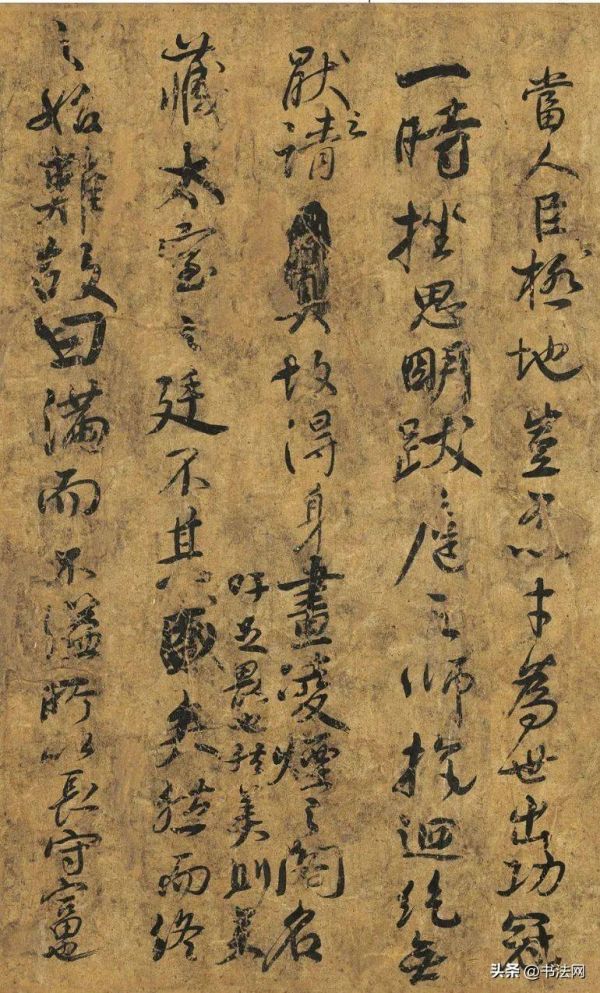 當人臣極地豈不以才為世出功冠
一時挫思明跋扈之師抗迴紇無
厭之請故得身畫凌煙之閣名
吁足畏也然美則美
藏太室之廷不其矣然而終
之始難故曰滿而不溢所以長守富也
头条 @书法网